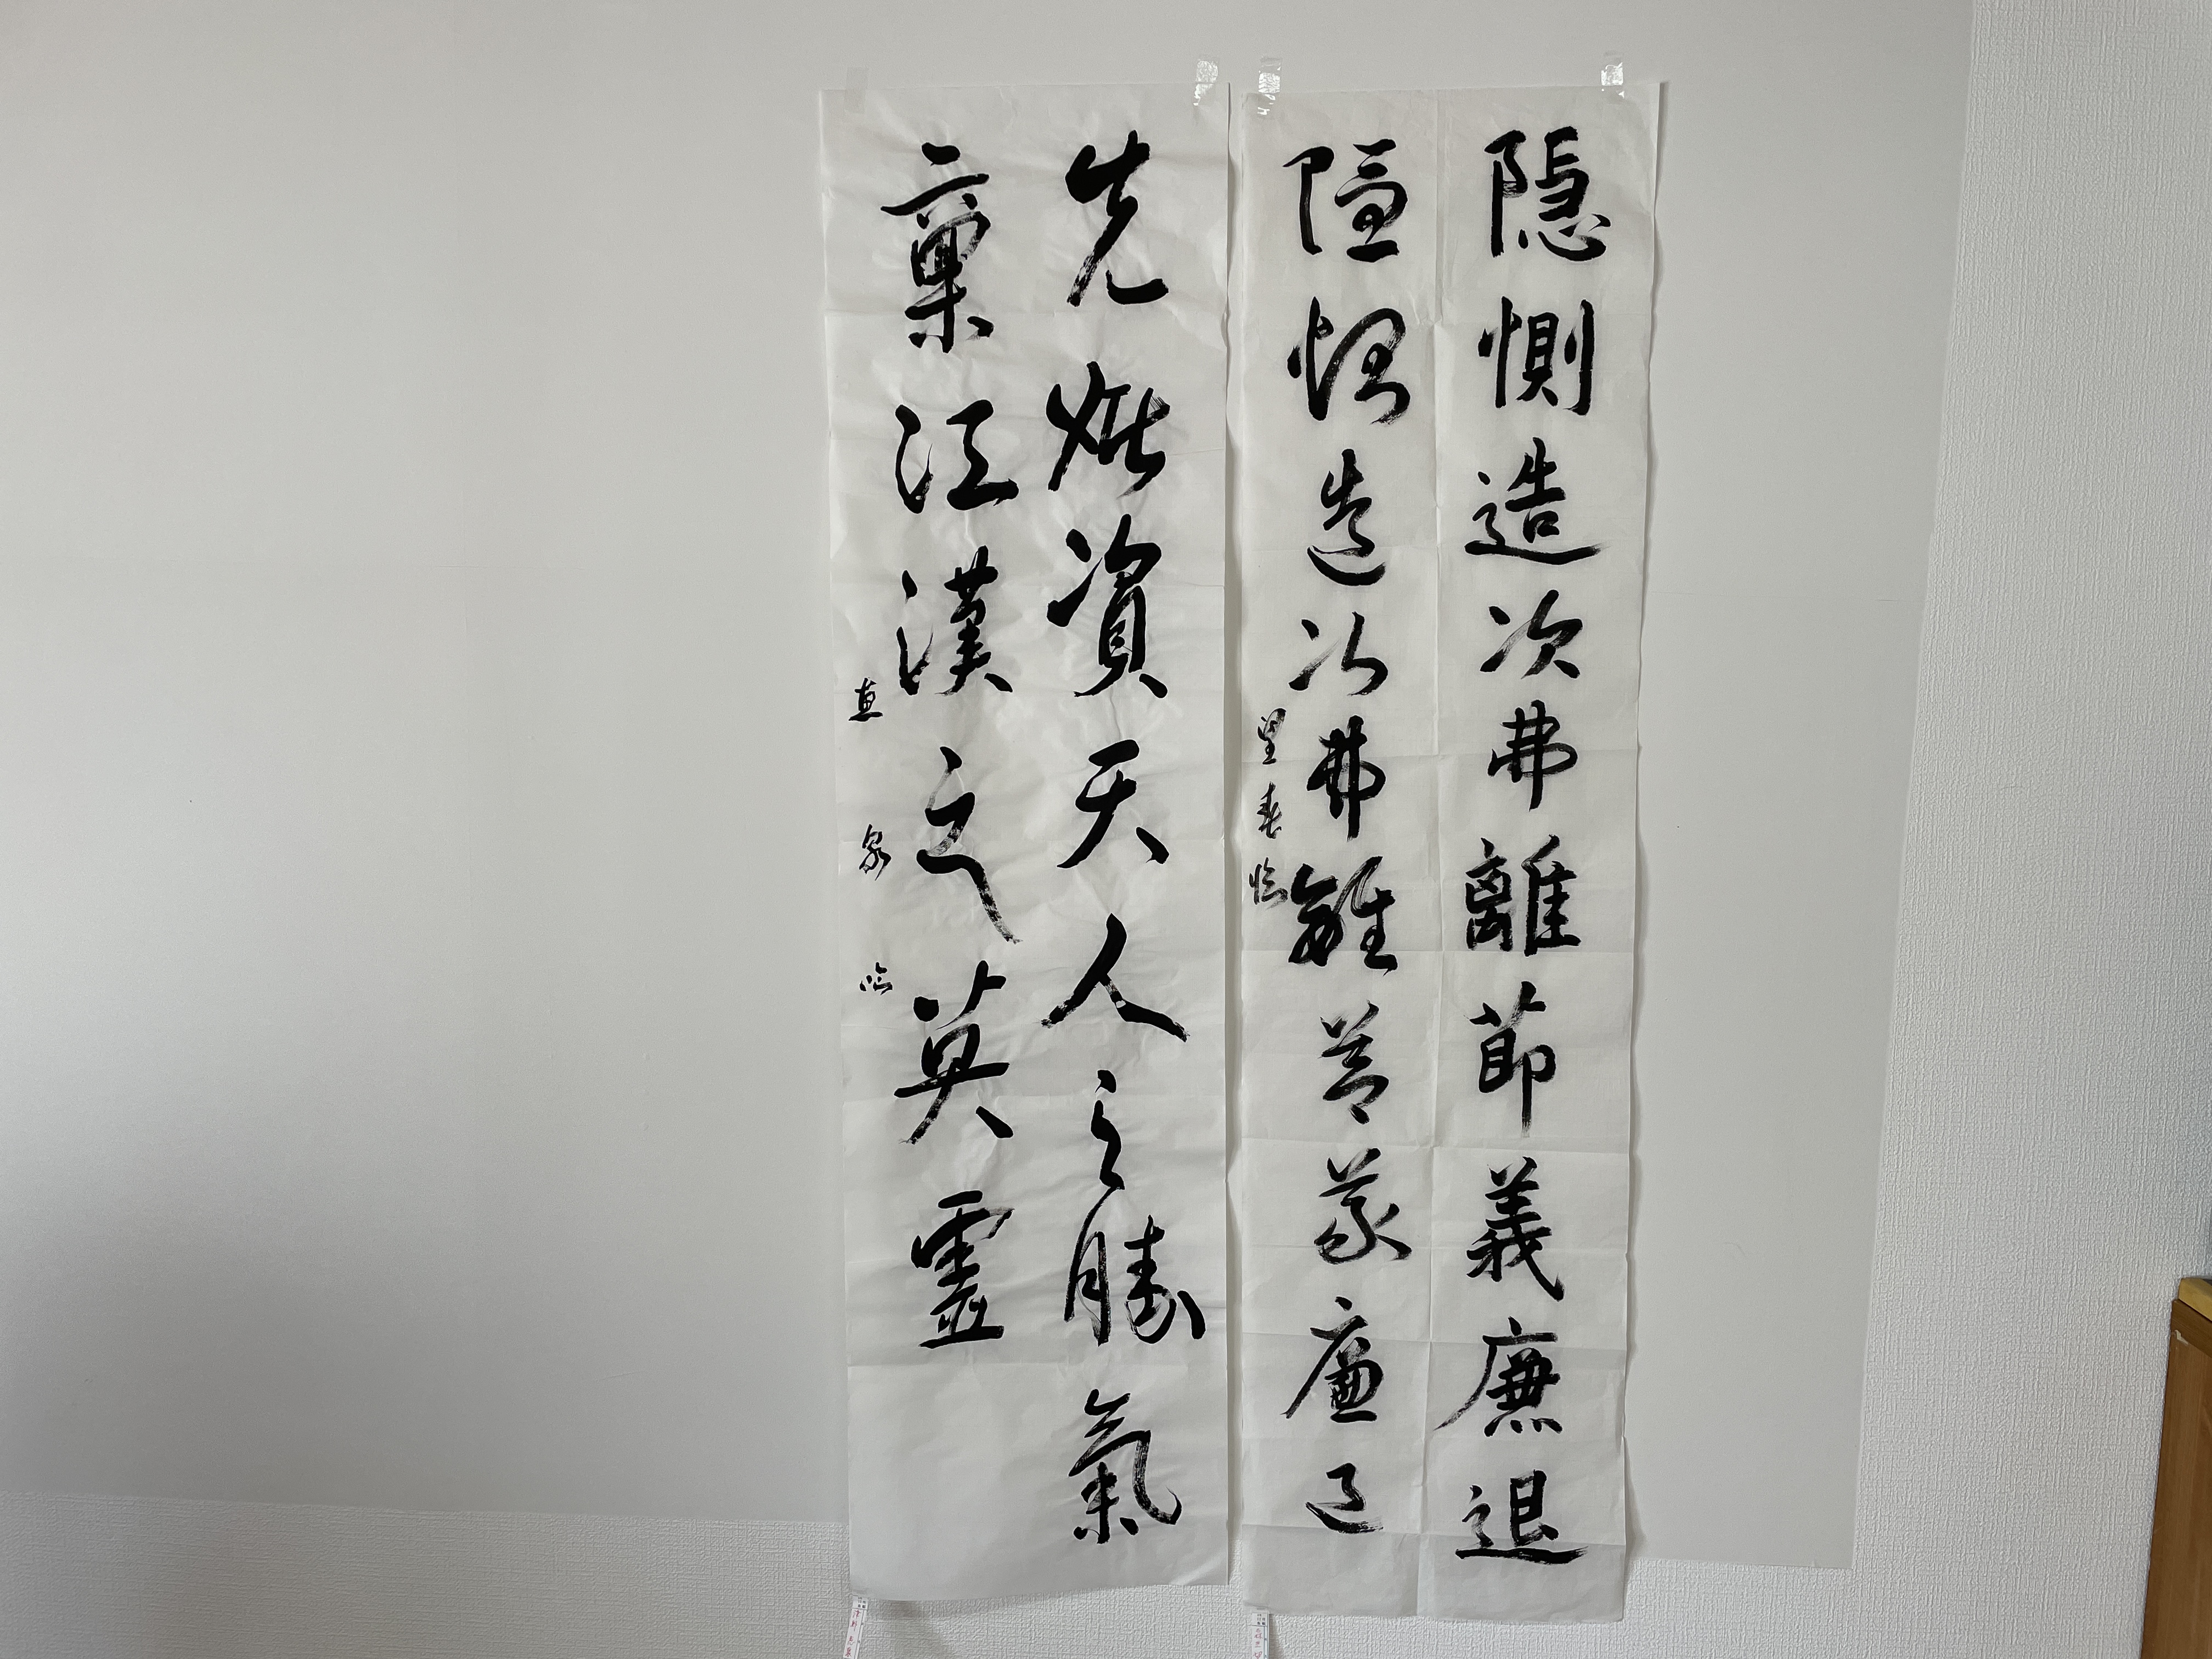 隠惻造次弗離節義廉退
隠惻造次弗離節義廉退
春臨
先妣資天人之勝氣
稟江漢之英靈
臨